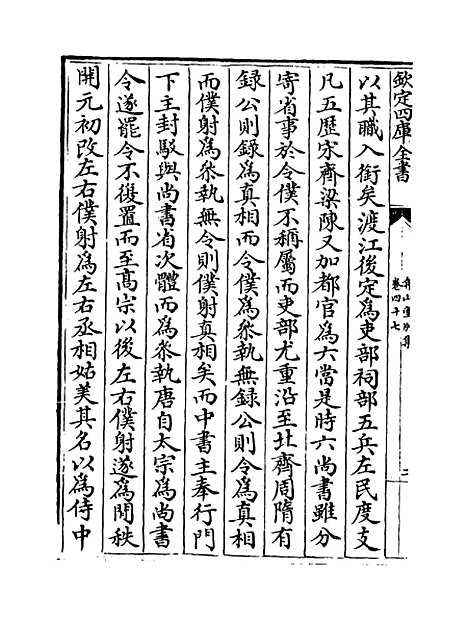 欽定四庫全書
卷四十七
以其職入銜矣渡江後定為吏部祠部五兵左民度支
凡五歴宋齊梁陳又加都官為六當是時六尚書雖分
寄省事於令僕不稱屬而吏部尤重沿至北齊周隋有
録公則録為真相而令僕為叅執無録公則令為真相
而僕射為叅執無令則僕射真相矣而中書主奉行門
下主封駁與尚書省次體而為叅執唐自太宗為尚書
令遂罷令不復置而至髙宗以後左右僕射遂為閒秩
開元初改左右僕射為左右丞相姑美其名以為侍中